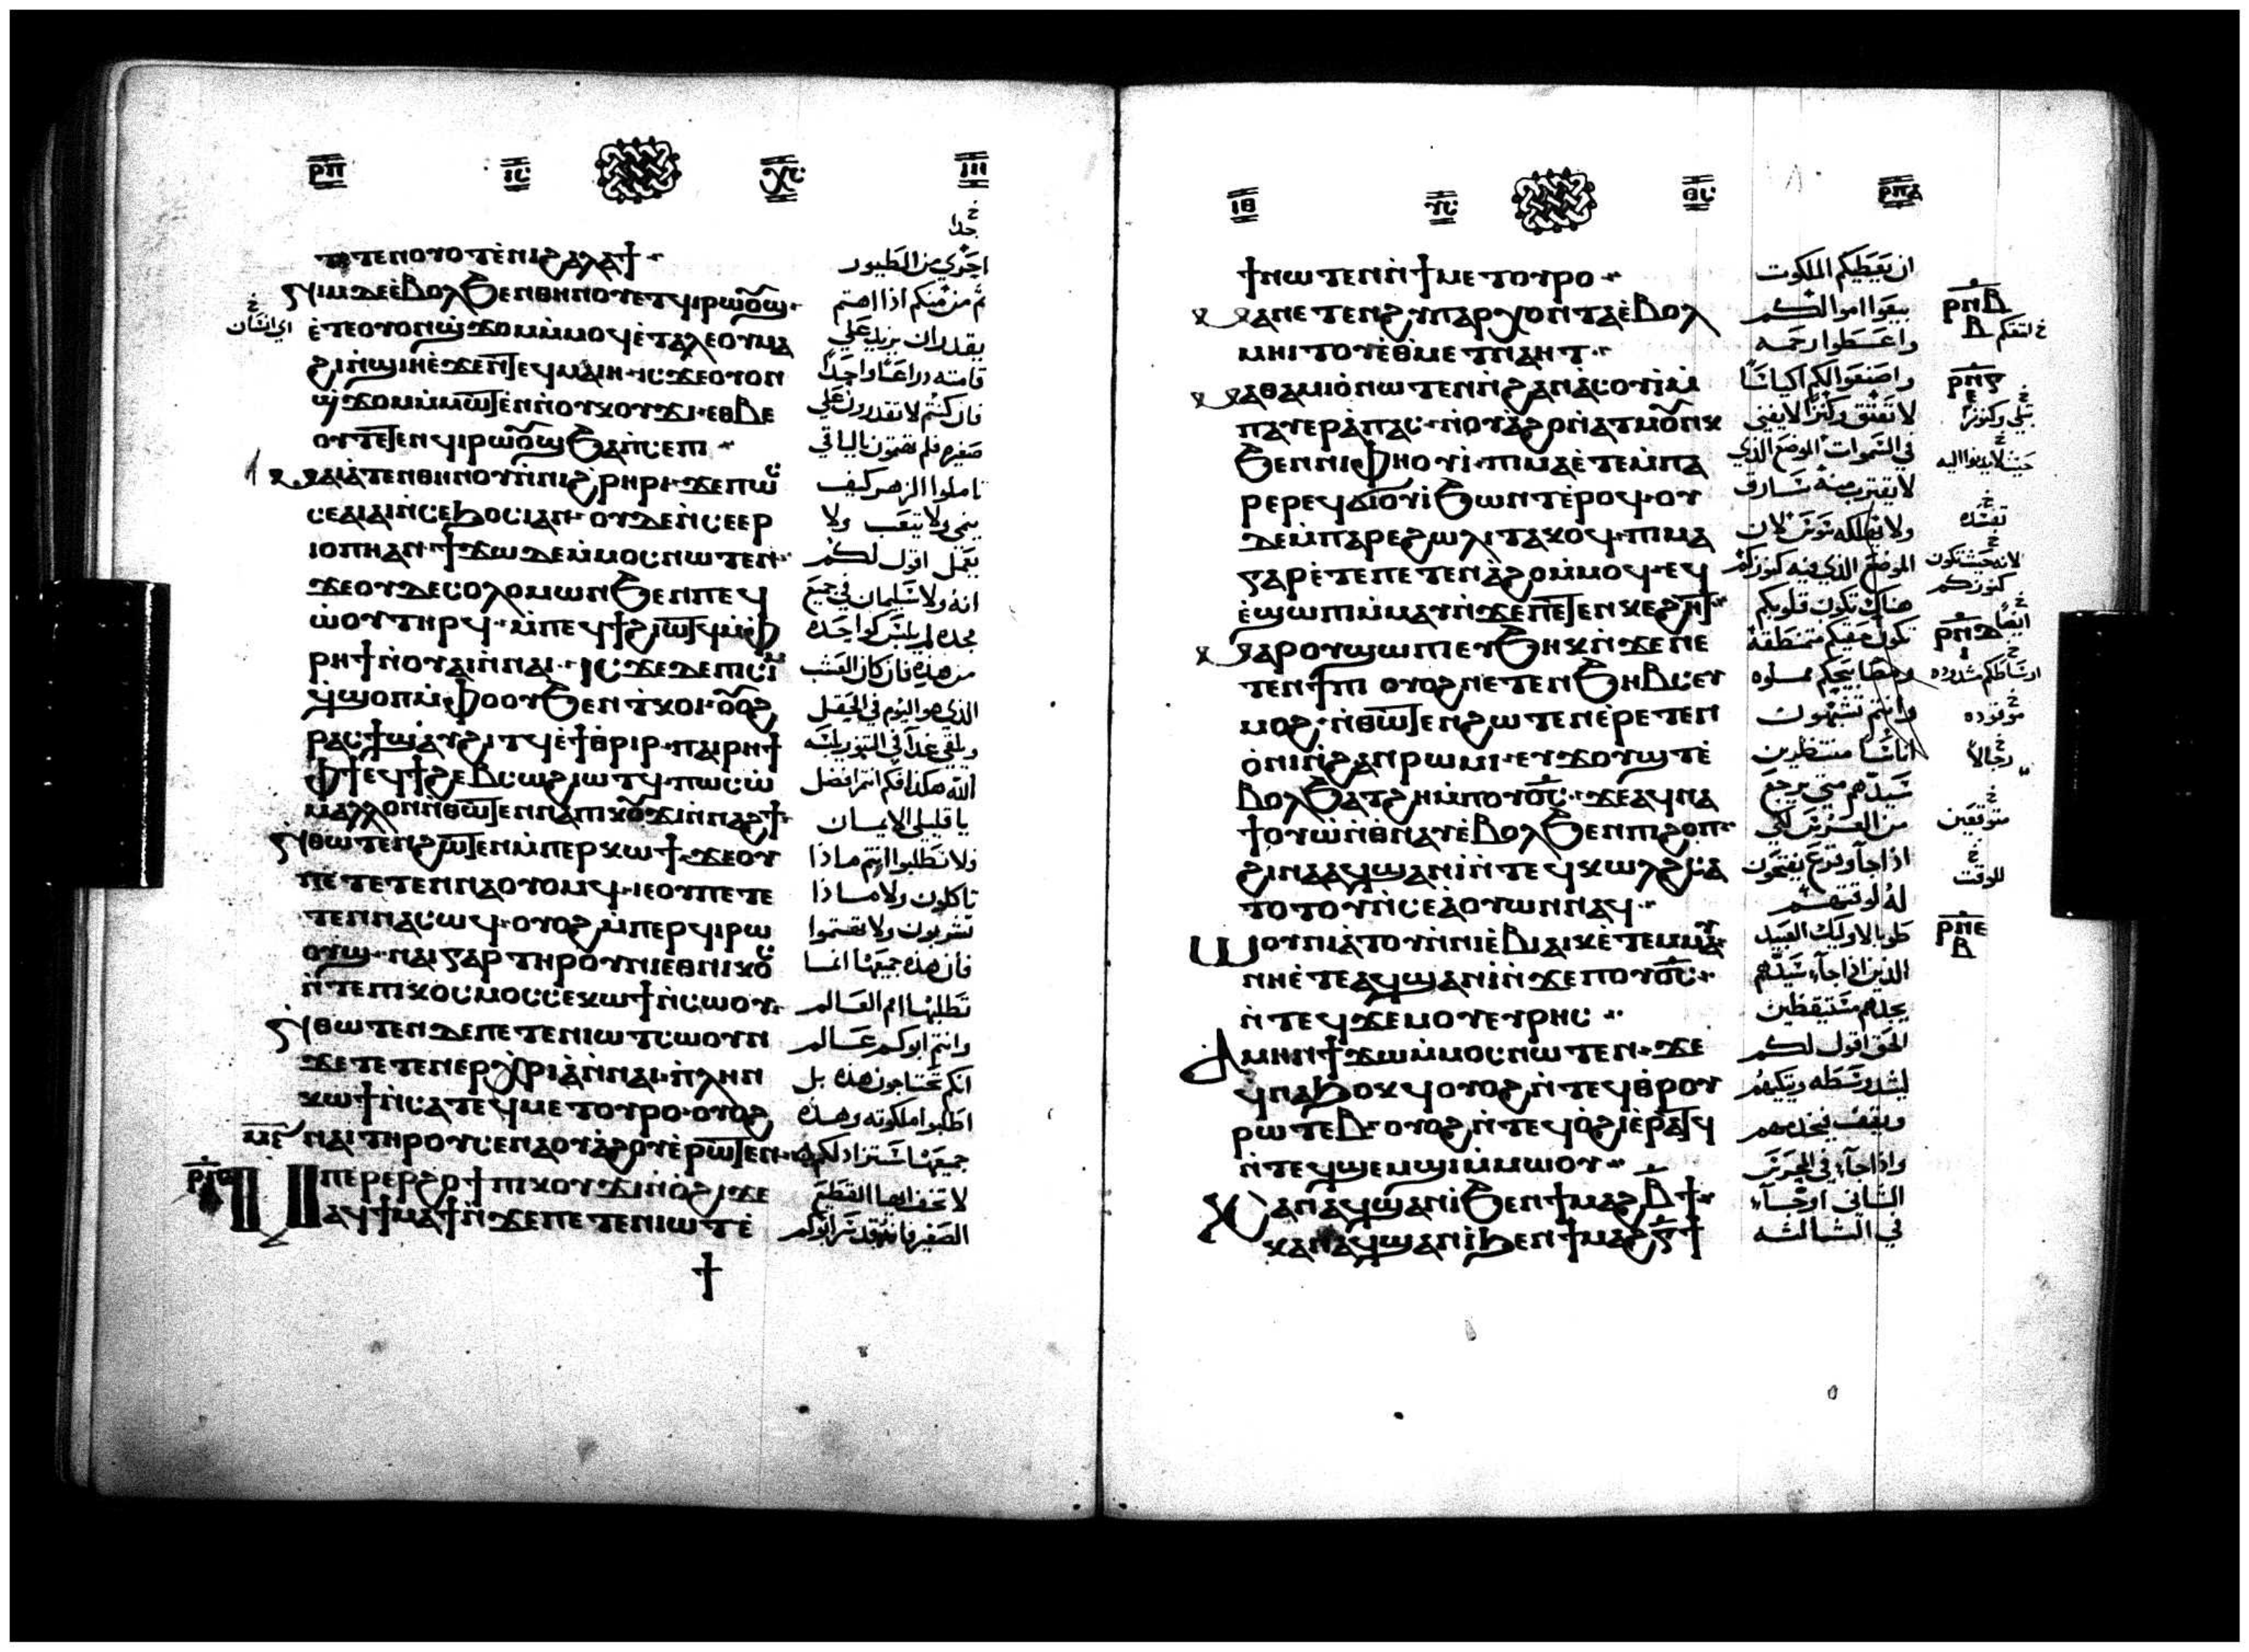 ⲣⲡ ⲓⲥ ⲭⲥ
ⲧⲉⲧⲉⲛⲟⲩⲟⲧ ⲉ̀ⲛⲓϩⲁⲗⲁϯ
ⲛⲓⲙ ⲇⲉ ⲉ̀ⲃⲟⲗ ϧⲉⲛ ⲑⲏⲛⲟⲩ ⲉⲧϥⲓⲣⲱⲟⲩϣ
ⲉ̀ⲧⲉ ⲟⲩⲟⲛ ϣϫⲟⲙ ⲙ̀ⲙⲟϥ ⲉ̀ⲧⲁⲗⲉ ⲟⲩⲙⲁ
ϩⲓ ⲛ̀ϣⲓⲏ ⲉ̀ϫⲉⲛ ⲧⲉϥⲙⲁⲓⲏ ⲓⲥϫⲉ ⲟⲩⲟⲛ
ϣϫⲟⲙ ⲙ̀ⲙⲱⲧⲉⲛ ⲉ̀ⲛⲟⲩⲕⲟⲩϫⲓ ⲉⲑⲃⲉ
ⲟⲩ ⲧⲉⲧⲉⲛϥⲓⲣⲱⲟⲩϣ ϧⲁ ⲡ̀ⲥⲉⲡⲓ
ⲙⲁⲓⲁ̀ⲧⲉⲛ ⲑⲏⲛⲟⲩ ⲛ̀ⲛⲓϩ̀ⲣⲏⲣⲓ ϫⲉ ⲡⲱⲥ
ⲥⲉⲁⲓⲁⲓ ⲛ̀ⲥⲉϧⲟⲥⲓ ⲁⲛ ⲟⲩⲇⲉ ⲛ̀ⲥⲉⲉⲣ
ⲓⲟⲡⲏ ⲁⲛ ϯϫⲱ ⲇⲉ ⲙ̀ⲙⲟⲥ ⲛⲱⲧⲉⲛ
ϫⲉ ⲟⲩⲇⲉ ⲥⲟⲗⲟⲙⲱⲛ ϧⲉⲛ ⲡⲉϥ
ⲱ̀ⲟⲩ ⲧⲏⲣϥ ⲙ̀ⲡⲉϥϯ ϩⲓⲱⲧϥ ⲙ̀ⲫ
ⲣⲏϯ ⲛ̀ⲟⲩⲁⲓ ⲛ̀ⲛⲁⲓ ⲓⲥϫⲉ ⲇⲉ ⲡⲓⲥⲓⲙ
ϥ̀ϣⲟⲡ ⲙ̀ⲫⲟⲟⲩ ϧⲉⲛ ⲧ̀ⲕⲟⲓ ⲟⲩⲟϩ
ⲣⲁⲥϯ ϣⲁⲩϩⲓⲧϥ ⲉ̀ϯⲑⲣⲓⲣ ⲡⲁⲓⲣⲏϯ
ⲫϯ ⲉϥϯϩⲉⲃⲥⲱ ϩⲓⲱⲧϥ ⲡⲱⲥ ⲱ̀
ⲙⲁⲗⲗⲟⲛ ⲛ̀ⲑⲱⲧⲉⲛ ⲛⲁ ⲡⲓⲕⲟⲩϫⲓ ⲛ̀ⲛⲁϩϯ
ⲛ̀ⲑⲱⲧⲉⲛ ϩⲱⲧⲉⲛ ⲙ̀ⲡⲉⲣⲕⲱϯ ϫⲉ ⲟⲩ
ⲡⲉ ⲧⲉⲧⲉⲛⲛⲁⲟⲩⲟⲙϥ ⲓⲉ ⲟⲩ ⲡⲉⲧⲉ
ⲧⲉⲛⲛⲁⲥⲱϥ ⲟⲩⲟϩ ⲙ̀ⲡⲉⲣϥⲓⲣⲱ
ⲟⲩϣ ⲛⲁⲓ ⲅⲁⲣ ⲧⲏⲣⲟⲩ ⲛⲓⲉⲑⲛⲓⲕⲟⲥ
ⲛ̀ⲧⲉ ⲡⲓⲕⲟⲥⲙⲟⲥ ⲥⲉⲕⲱϯ ⲛ̀ⲥⲱⲟⲩ
ⲛ̀ⲑⲱⲧⲉⲛ ⲇⲉ ⲡⲉⲧⲉⲛⲓⲱⲧ ⲥⲱⲟⲩⲛ
ϫⲉ ⲧⲉⲧⲉⲛⲉⲣⲭ̀ⲣⲓⲁ̀ ⲛ̀ⲛⲁⲓ ⲡ̀ⲗⲏⲛ
ⲕⲱϯ ⲛ̀ⲥⲁ ⲧⲉϥⲙⲉⲧⲟⲩⲣⲟ ⲟⲩⲟϩ
ⲛⲁⲓ ⲧⲏⲣⲟⲩ ⲥⲉⲛⲁⲟⲩⲁ̀ϩⲟⲩ ⲉ̀ⲣⲱⲧⲉⲛ
ⲙ̀ⲡⲉⲣⲉⲣϩⲟϯ ⲡⲓⲕⲟⲩϫⲓ ⲛ̀ⲟ̀ϩⲓ ϫⲉ
ⲁϥϯⲙⲁϯ ⲛ̀ϫⲉ ⲡⲉⲧⲉⲛⲓⲱⲧ ⲉ̀
اجري من الطيور
ثم من منكم اذا اهتم
يقدر ان يزيد علي
قامته دراعًا واحدًا
فان كنتم لا تقدرون علي
صغيره فلم تهتمون بالباقي
تاملوا الزهر كيف
ينمي ولا يتعب ولا
يعمل اقول لكم
انه ولا سليمان في جميع
مجده لم يلبس كواحده
من هذه فان كان العشب
الذي هو اليوم في الحقل
ويلقي غدًا في التنور يلبسه
الله هكذا فكم انتم افضل
يا قليلي الايمان
ولا تطلبوا انتم ماذا
تاكلون ولا ماذا
تشربون ولا تهتموا
فان هذه جميعها انما
تطلبها امم العالم
وانتم ابوكم عالم
انكم تحتاجون هذه بل
اطلبوا ملكوته وهذه
جميعها ستزاد لكم
لا تخف ايها القطيع
الصغير فانه قد سر ابوكم
ⲓⲃ ⲩⲥ ⲑⲥ ⲣⲡⲁ
ϯ ⲛⲱⲧⲉⲛ ⲛ̀ϯⲙⲉⲧⲟⲩⲣⲟ
ⲙⲁ ⲛⲉⲧⲉⲛϩⲩⲡⲁⲣⲭⲟⲛⲧⲁ ⲉ̀ⲃⲟⲗ
ⲙⲏⲓⲧⲟⲩ ⲉ̀ⲑⲙⲉⲧⲛⲁⲏⲧ
ⲙⲁⲑⲁⲙⲓⲟ̀ ⲛⲱⲧⲉⲛ ⲛ̀ϩⲁⲛⲁ̀ⲥⲟⲩⲓ̀ ⲙ̀
ⲡⲁⲩⲉⲣⲁ̀ⲡⲁⲥ ⲛ̀ⲟⲩⲁ̀ϩⲟ ⲛ̀ⲁⲧⲙⲟⲩⲛⲕ
ϧⲉⲛ ⲛⲓⲫⲏⲟⲩⲓ̀ ⲡⲓⲙⲁ ⲉ̀ⲧⲉ ⲙ̀ⲡⲁ
ⲣⲉ ⲣⲉϥϭⲓⲟⲩⲓ̀ ϧⲱⲛⲧ ⲉ̀ⲣⲟϥ ⲟⲩ
ⲇⲉ ⲙ̀ⲡⲁⲣⲉ ϩⲱⲗⲓ ⲧⲁⲕⲟϥ ⲡⲓⲙⲁ
ⲅⲁⲣ ⲉ̀ⲧⲉ ⲡⲉⲧⲉⲛⲁ̀ϩⲟ ⲙ̀ⲙⲟϥ ⲉϥ
ⲉ̀ϣⲱⲡⲓ ⲙ̀ⲙⲁⲩ ⲛ̀ϫⲉ ⲡⲉⲧⲉⲛⲕⲉϩⲏⲧ
ⲙⲁⲣⲟⲩϣⲱⲡⲓ ⲉⲩϧⲏⲕ ⲛ̀ϫⲉ ⲛⲉ
ⲧⲉⲛϯⲡⲓ ⲟⲩⲟϩ ⲛⲉⲧⲉⲛϧⲏⲃⲥ ⲉⲩ
ⲙⲟϩ ⲛ̀ⲑⲱⲧⲉⲛ ϩⲱⲧⲉⲛ ⲉ̀ⲣⲉⲧⲉⲛ
ⲟ̀ⲛⲓ ⲛ̀ϩⲁⲛⲣⲱⲙⲓ ⲉⲩϫⲟⲩϣⲧ ⲉ̀
ⲃⲟⲗ ϧⲁⲧϩⲏ ⲙ̀ⲡⲟⲩⲟ̅ⲥ̅ ϫⲉ ⲁϥⲛⲁ
ϯⲟⲩⲱ̀ ⲛ̀ⲑⲛⲁⲩ ⲉ̀ⲃⲟⲗ ϧⲉⲛ ⲡⲓϩⲟⲡ
ϩⲓⲛⲁ ⲁϥϣⲁⲛⲓ̀ ⲛ̀ⲧⲉϥⲕⲱⲗϩ ⲥⲁ
ⲧⲟⲧⲟⲩ ⲛ̀ⲥⲉⲁⲟⲩⲱⲛ ⲛⲁϥ
ⲱⲟⲩⲛⲓⲁ̀ⲧⲟⲩ ⲛ̀ⲛⲓⲉ̀ⲃⲓⲁⲓⲕ ⲉ̀ⲧⲉⲙⲙⲁⲩ
ⲛⲏ ⲉ̀ⲧⲉ ⲁϥϣⲁⲛⲓ̀ ⲛ̀ϫⲉ ⲡⲟⲩⲟ̅ⲥ̅
ⲛ̀ⲧⲉϥϫⲉⲙⲟⲩ ⲉⲩⲣⲏⲥ
ⲁⲙⲏⲛ ϯϫⲱ ⲙ̀ⲙⲟⲥ ⲛⲱⲧⲉⲛ ϫⲉ
ϥⲛⲁϧⲟⲕϥ ⲟⲩⲟϩ ⲛ̀ⲧⲉϥⲑⲣⲟⲩ
ⲣⲱⲧⲉⲃ ⲟⲩⲟϩ ⲛ̀ⲧⲉϥⲟ̀ϩⲓ ⲉ̀ⲣⲁⲧϥ
ⲛ̀ⲧⲉϥϣⲉⲙϣⲓ ⲙ̀ⲙⲱⲟⲩ
ⲕⲁⲛ ⲁϥϣⲁⲛⲓ̀ ϧⲉⲛ ϯⲙⲁϩⲃ̅ϯ
ⲕⲁⲛ ⲁϥϣⲁⲛⲓ̀ ϧⲉⲛ ϯⲙⲁϩⲅ̅ϯ
ان يعطيكم الملكوت
بيعوا اموالكم
واعطوا رحمه
واصنعوا لكم اكياسًا
لا تعتق وكنزًا لا يفني
في السموات الموضع الذي
لا يقترب منه سارق
ولا يهلكه سوس لان
الموضع الذي فيه كنوزكم
هناك تكون قلوبكم
تكون حقيكم متمنطقه
ومصابيحكم مملوه
وانتم تشبهون
اناسًا منتظرين
سيدهم متي يرجع
من العرس لكي
اذا جآ وقرع يفتحون
له لوقتهم
طوبا لاوليك العبيد
الذين اذا جآء سيدهم
يجدهم مستيقظين
الحق اقول لكم
ليشد وسطه ويتكيهم
ويقف يخدمهم
واذا جآء في الحرس
الثاني او جآء
في الثالثه
ⲣⲡⲃ
ⲃ
ⲣⲡⲅ
ⲉ
ⲣⲡⲇ
رجالاً
متوقعين
للوقت
ⲣⲡⲉ
ⲃ